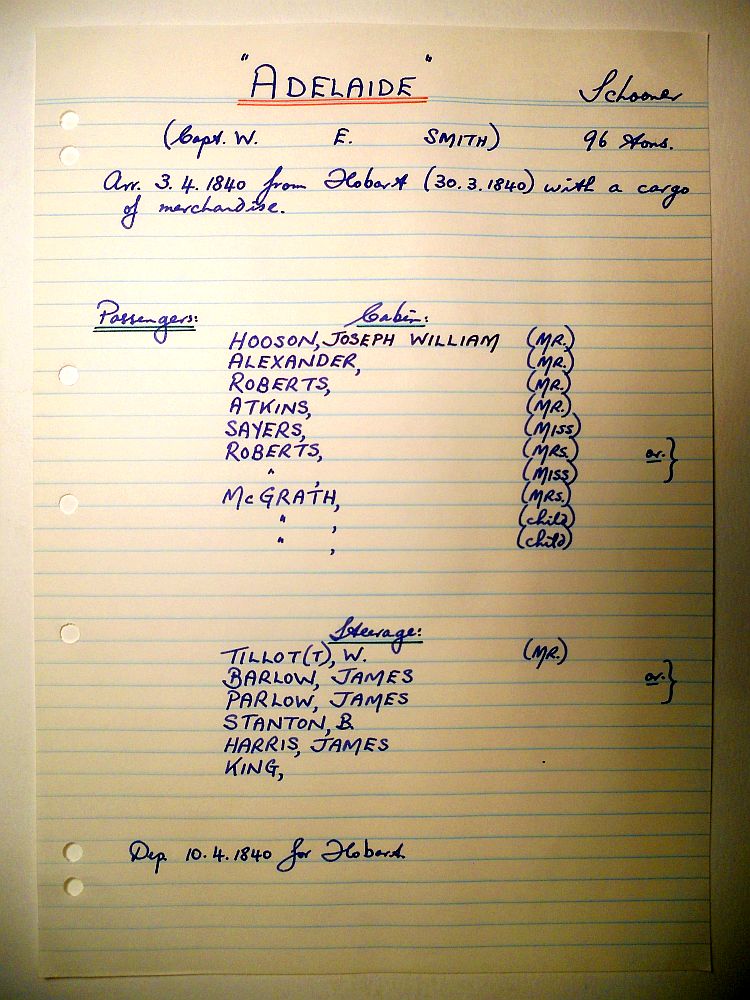 "ADELAIDE" Schooner
(Capt. W. E. SMITH) 96 tons.
Arr. 3.4.1840 from Hobart (30.3.1840) with a cargo
of merchandise.
Passengers: Cabin:
HOOSON, JOSEPH WILLIAM (MR.)
ALEXANDER, (MR.)
ROBERTS, (MR.)
ATKINS, (MR.)
SAYERS, (MISS)
ROBERTS, (MRS.) or. }
" , (MISS)
McGRATH, (MRS.)
" , (child)
" , (child)
Steerage:
TILLOT(T), W. (MR.)
BARLOW, JAMES or. }
PARLOW, JAMES
STANTON, B.
HARRIS, JAMES
KING,
Dep. 10.4.1840 for Hobart.